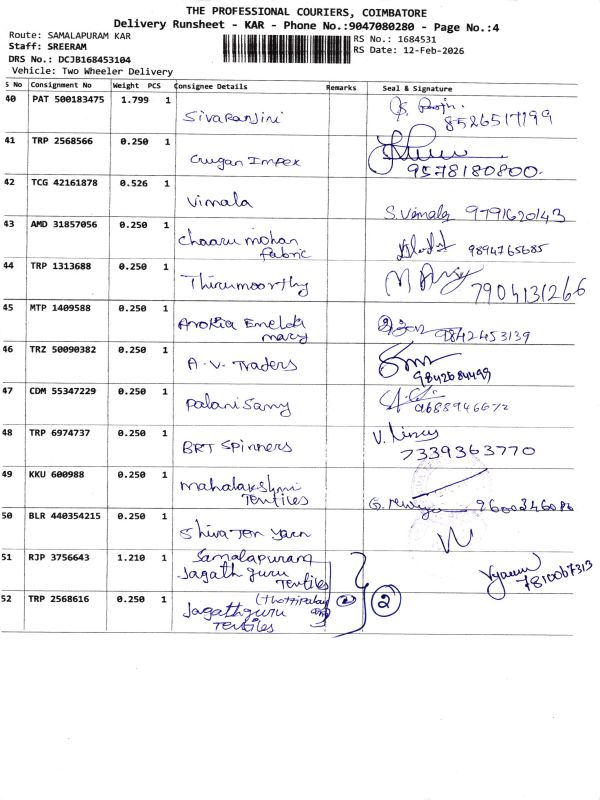 THE PROFESSIONAL COURIERS, COIMBATORE
Delivery Runsheet - KAR - Phone No.:9047080280 - Page No.:4
Route: SAMALAPURAM KAR
RS No.: 1684531
Staff: SREERAM
RS Date: 12-Feb-2026
DRS No.: DCJB168453104
Vehicle: Two Wheeler Delivery
S No Consignment No Weight PCS Consignee Details Remarks Seal & Signature
40 PAT 500183475 1.799 1
Sivaranjini
8526517199
41 TRP 2568566 0.250 1
Crugan Impex
9578180800.
42 TCG 42161878 0.526 1
Vimala
S. Vimala 9791620143
43 AMD 31857056 0.250 1
Chaaru mohan
fabric
9894765685
44 TRP 1313688 0.250 1
Thirumoorthy
7904131266
45 MTP 1409588 0.250 1
Arokia Emelda
mary
9842453139
46 TRZ 50090382 0.250 1
A.V. Traders
9842684499
47 CDM 55347229 0.250 1
Palani Samy
48 TRP 6974737 0.250 1
BRT Spinners
7339363770
49 KKU 600988 0.250 1
Mahalakshmi
Textiles
50 BLR 440354215 0.250 1
Shiva Tex Yarn
51 RJP 3756643 1.210 1
Samalapuram
Jagath guru
Textiles
7810067313
52 TRP 2568616 0.250 1
Jagathguru
Textiles
2